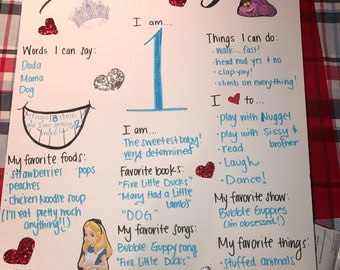 I am...
1
Words I can say:
Dada
Mama
Dog
Things I can do:
- walk... fast!
- head nod yes & no
- clap yay!
- climb on everything!
I ... to...
- play with Nugget
- play with Sissy & brother
- read
- Laugh
- Dance!
8
I am...
The sweetest baby!
very determined
My favorite foods:
strawberries pops
peaches
chicken noodle soup
(I'll eat pretty much anything!)
Favorite books:
"Five Little Ducks"
"Mary Had a Little Lamb"
"DOG"
My favorite songs:
Bubble Guppy song
"Five Little Ducks"
My favorite show:
Bubble Guppies
(im obsessed!)
My favorite things:
- stuffed animals